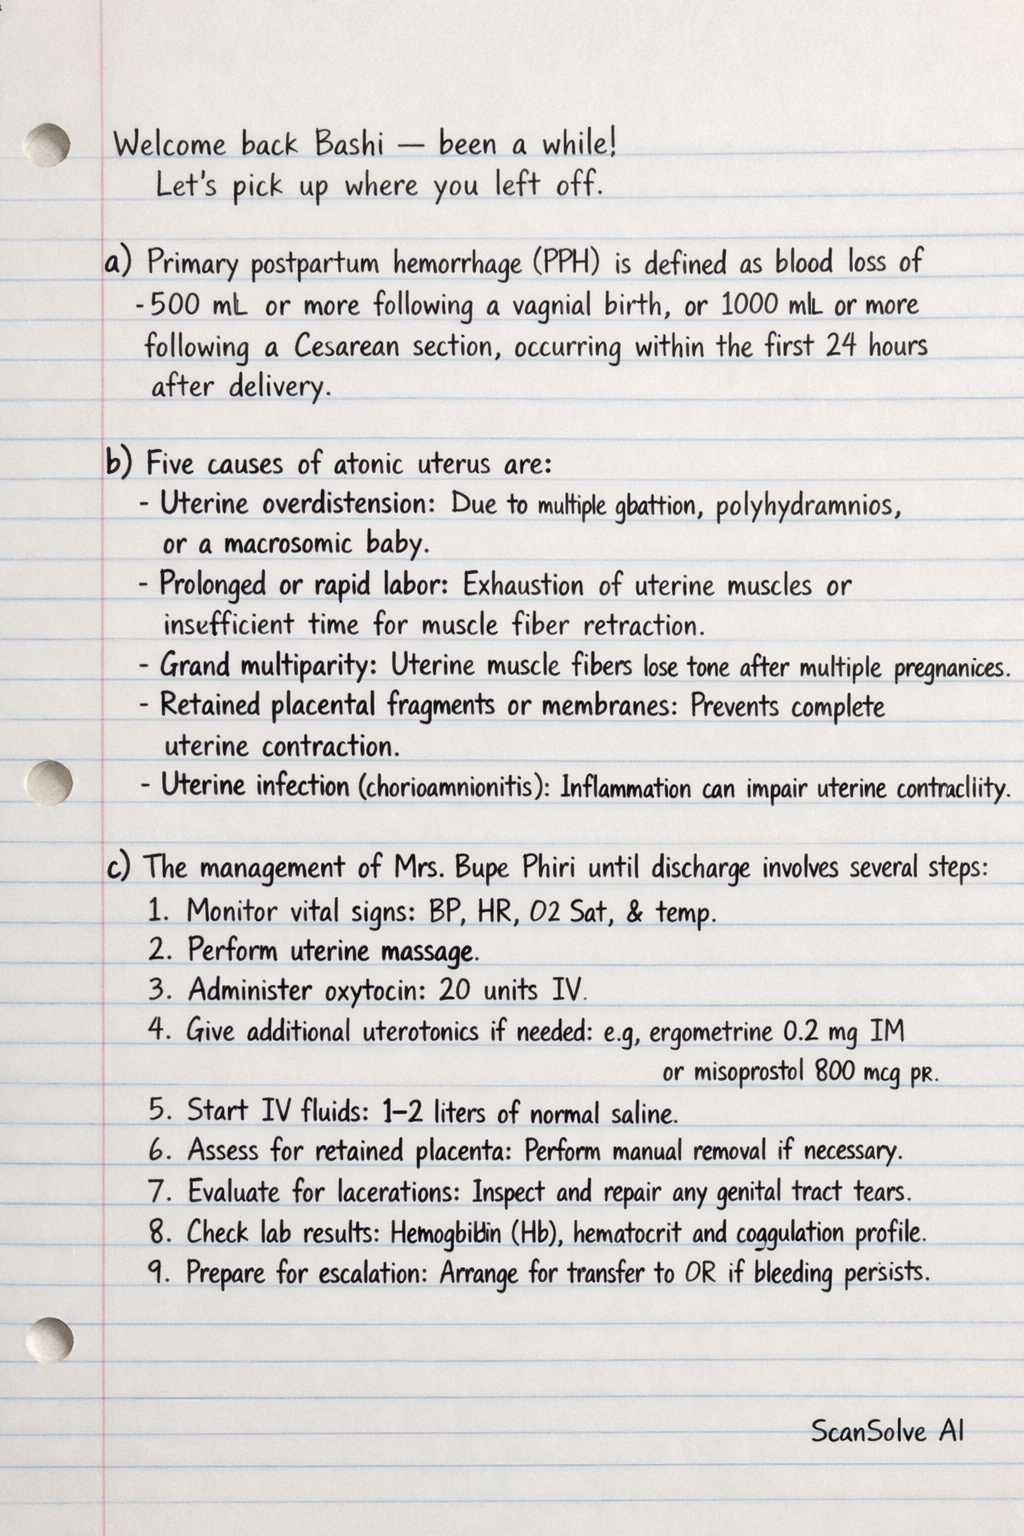 Welcome back Bashi — been a while!
Let's pick up where you left off.
a) Primary postpartum hemorrhage (PPH) is defined as blood loss of
-500 mL or more following a vagnial birth, or 1000 mL or more
following a Cesarean section, occurring within the first 24 hours
after delivery.
b) Five causes of atonic uterus are:
- Uterine overdistension: Due to multiple gbattion, polyhydramnios,
or a macrosomic baby.
- Prolonged or rapid labor: Exhaustion of uterine muscles or
insufficient time for muscle fiber retraction.
- Grand multiparity: Uterine muscle fibers lose tone after multiple pregnanices.
- Retained placental fragments or membranes: Prevents complete
uterine contraction.
- Uterine infection (chorioamnionitis): Inflammation can impair uterine
c) The management of Mrs. Bupe Phiri until discharge involves several steps:
1. Monitor vital signs: BP, HR, O2 Sat, & temp.
2. Perform uterine massage.
3. Administer oxytocin: 20 units IV.
4. Give additional uterotonics if needed: e.g, ergometrine 0.2 mg IM
or misoprostol 800 mcg PR.
5. Start IV fluids: 1–2 liters of normal saline.
6. Assess for retained placenta: Perform manual removal if necessary.
7. Evaluate for lacerations: Inspect and repair any genital tract tears.
8. Check lab results: (Hb), hematocrit and coggulation profile.
9. Prepare for escalation: Arrange for transfer to OR if bleeding persists.
ScanSolve AI